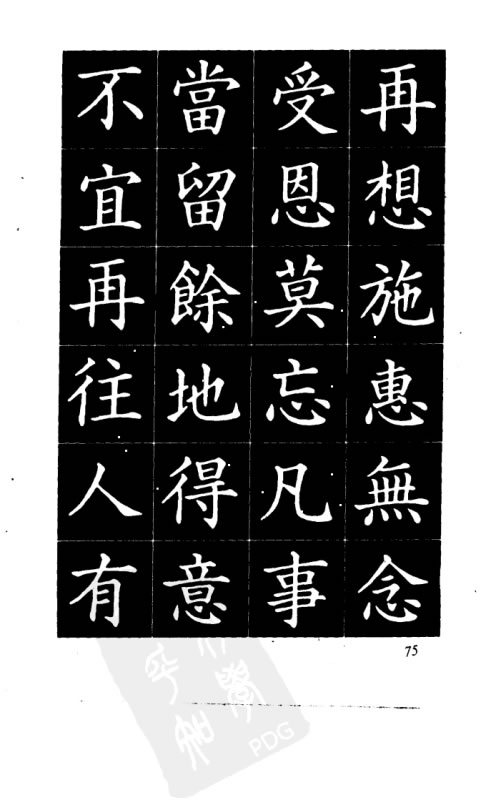 再想施惠無念
受恩莫忘凡事
當留餘地得意
不宜再往人有
75
PDG